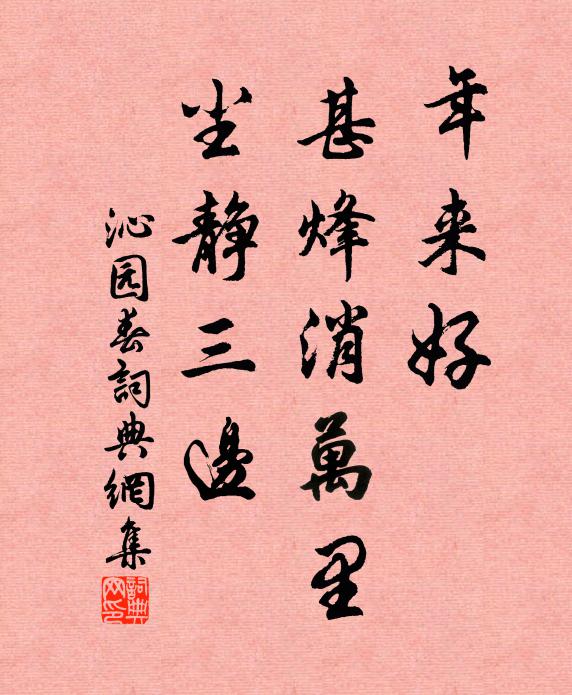 年来好
甚烽消萬里
尘静三邊
沁园春詞典網集
詞典网印